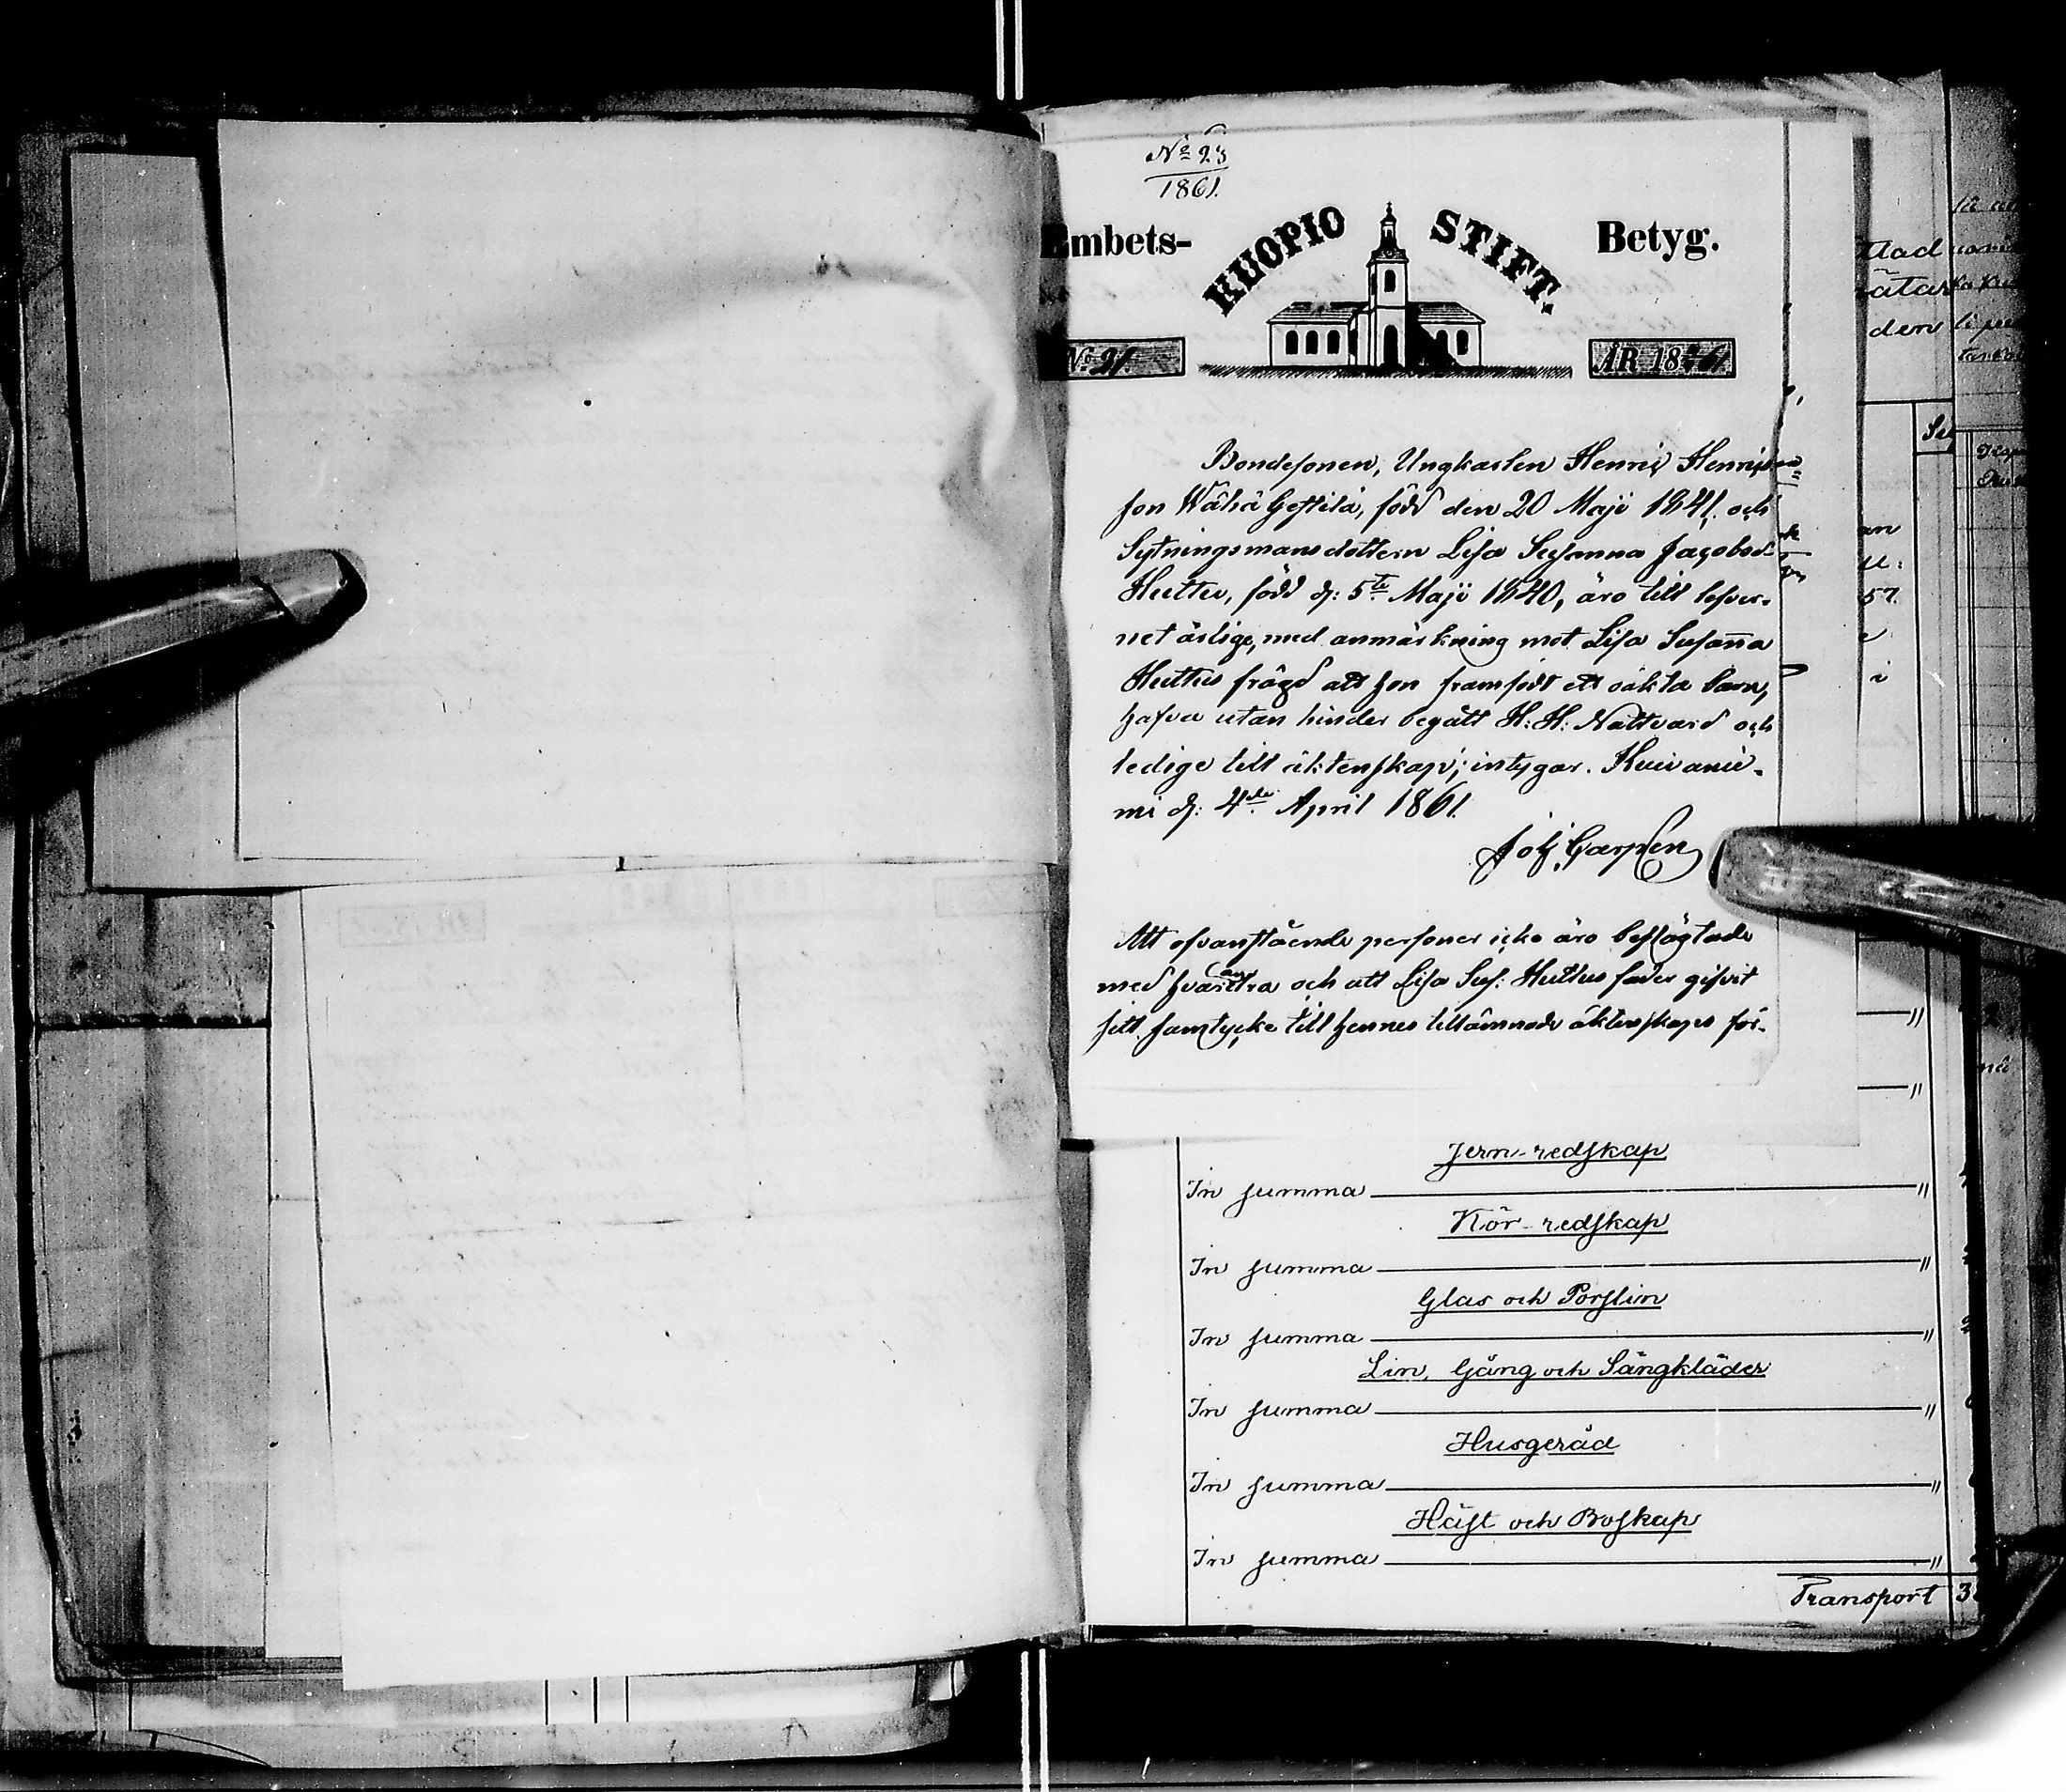 No 23
1861.
Embets- KUOPIO STIFT. Betyg.
No 21. ÅR 1861.
Bondesonen, Ungkarlen Henric Henrics-
son Wähä Gestilä, född den 20 Maji 1841. och
Sytningsmansdottern Lisa Susanna Jacobsd.
Huttu, född d: 5te Maji 1840, äro till lefver-
net ärlige, med anmärkning mot Lisa Susaña
Huttus frägd att hon framfödt ett oäkta barn,
hafva utan hinder begått H: H: Nattvard och
ledige till äktenskap; intygar. Kuivanie-
mi d: 4de April 1861.
Joh. Garpen
Att ofvanstående personer icke äro beslägtade
med hvarandra och att Lisa Sus: Huttus fader gifvit
sitt samtycke till hennes tillämnade äktenskaps för-
Jern-redskap
In summa "
Kör-redskap
In summa "
Glas och Porslin
In summa "
Lin, Gång och Sängkläder
In summa "
Husgeråd
In summa "
Häst och Boskap
In summa "
Transport 3
den
57.